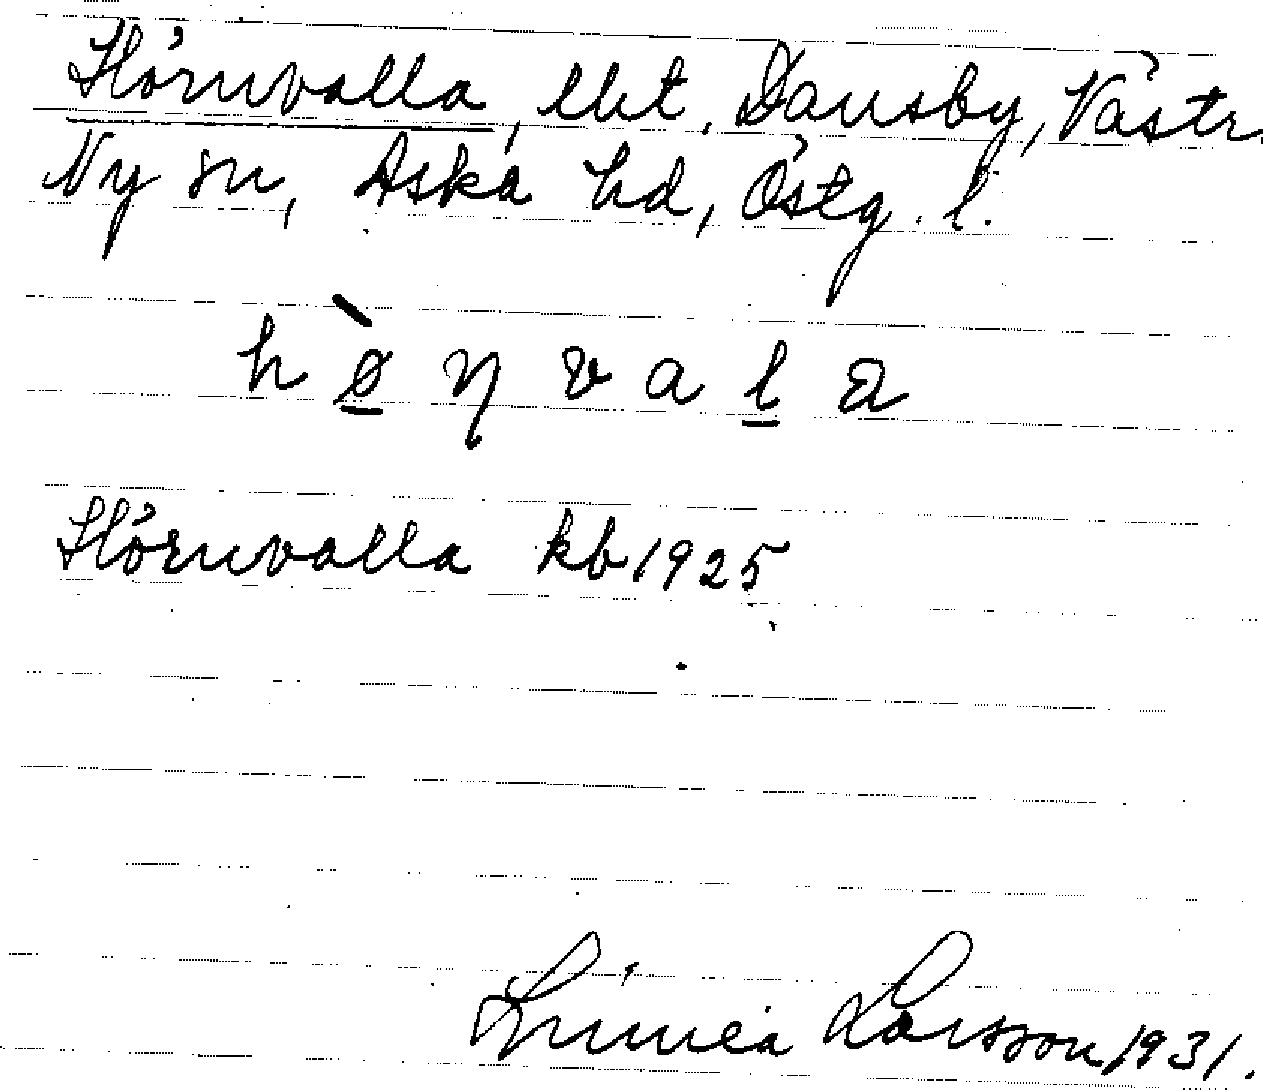 Hörnvalla, lht, Dansby, Västr.
Ny sn, Aska hd, Östg. l.
hø̀ɳvala
Hörnvalla kb 1925
Linnéa Larsson 1931.